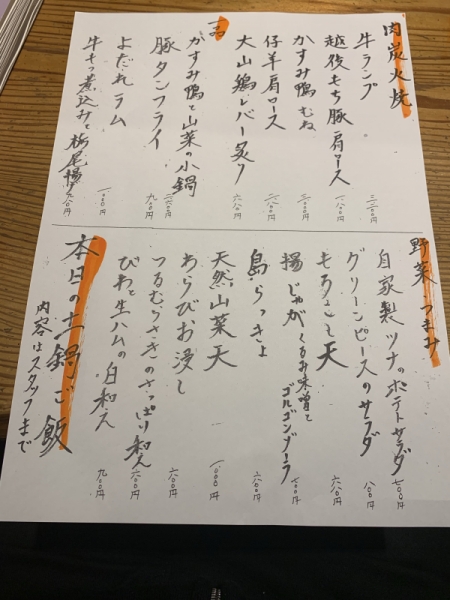 肉炭火焼
牛ランプ 三二〇〇円
越後もち豚肩ロース 一八〇〇円
かすみ鴨むね 二三〇〇円
仔羊肩ロース 二八〇〇円
大山鶏レバー炙り 六八〇円
かすみ鴨と山菜の小鍋
豚タンフライ 九〇〇円
よだれラム 一一〇〇円
牛すじ煮込みと栃尾揚げ
野菜・つまみ
自家製ツナのポテトサラダ 七〇〇円
グリーンピースのサラダ 八〇〇円
もろこし天 六八〇円
揚じゃが くるみ味噌とゴルゴンゾーラ
島らっきょ 六八〇円
天然山菜天 一一〇〇円
わらびお浸し 六〇〇円
つるむらさきのさっぱり和え 六〇〇円
びわと生ハムの白和え 九〇〇円
本日の土鍋ご飯
内容はスタッフまで